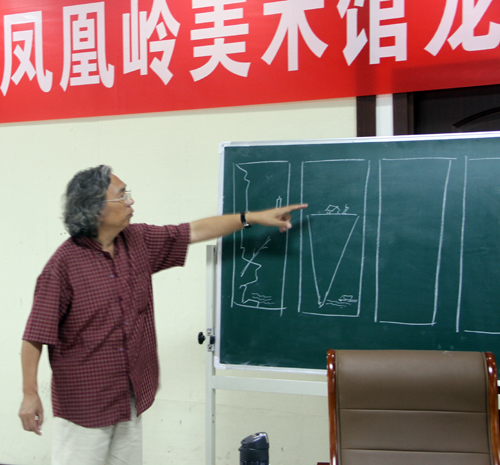 凤凰岭美术馆龙